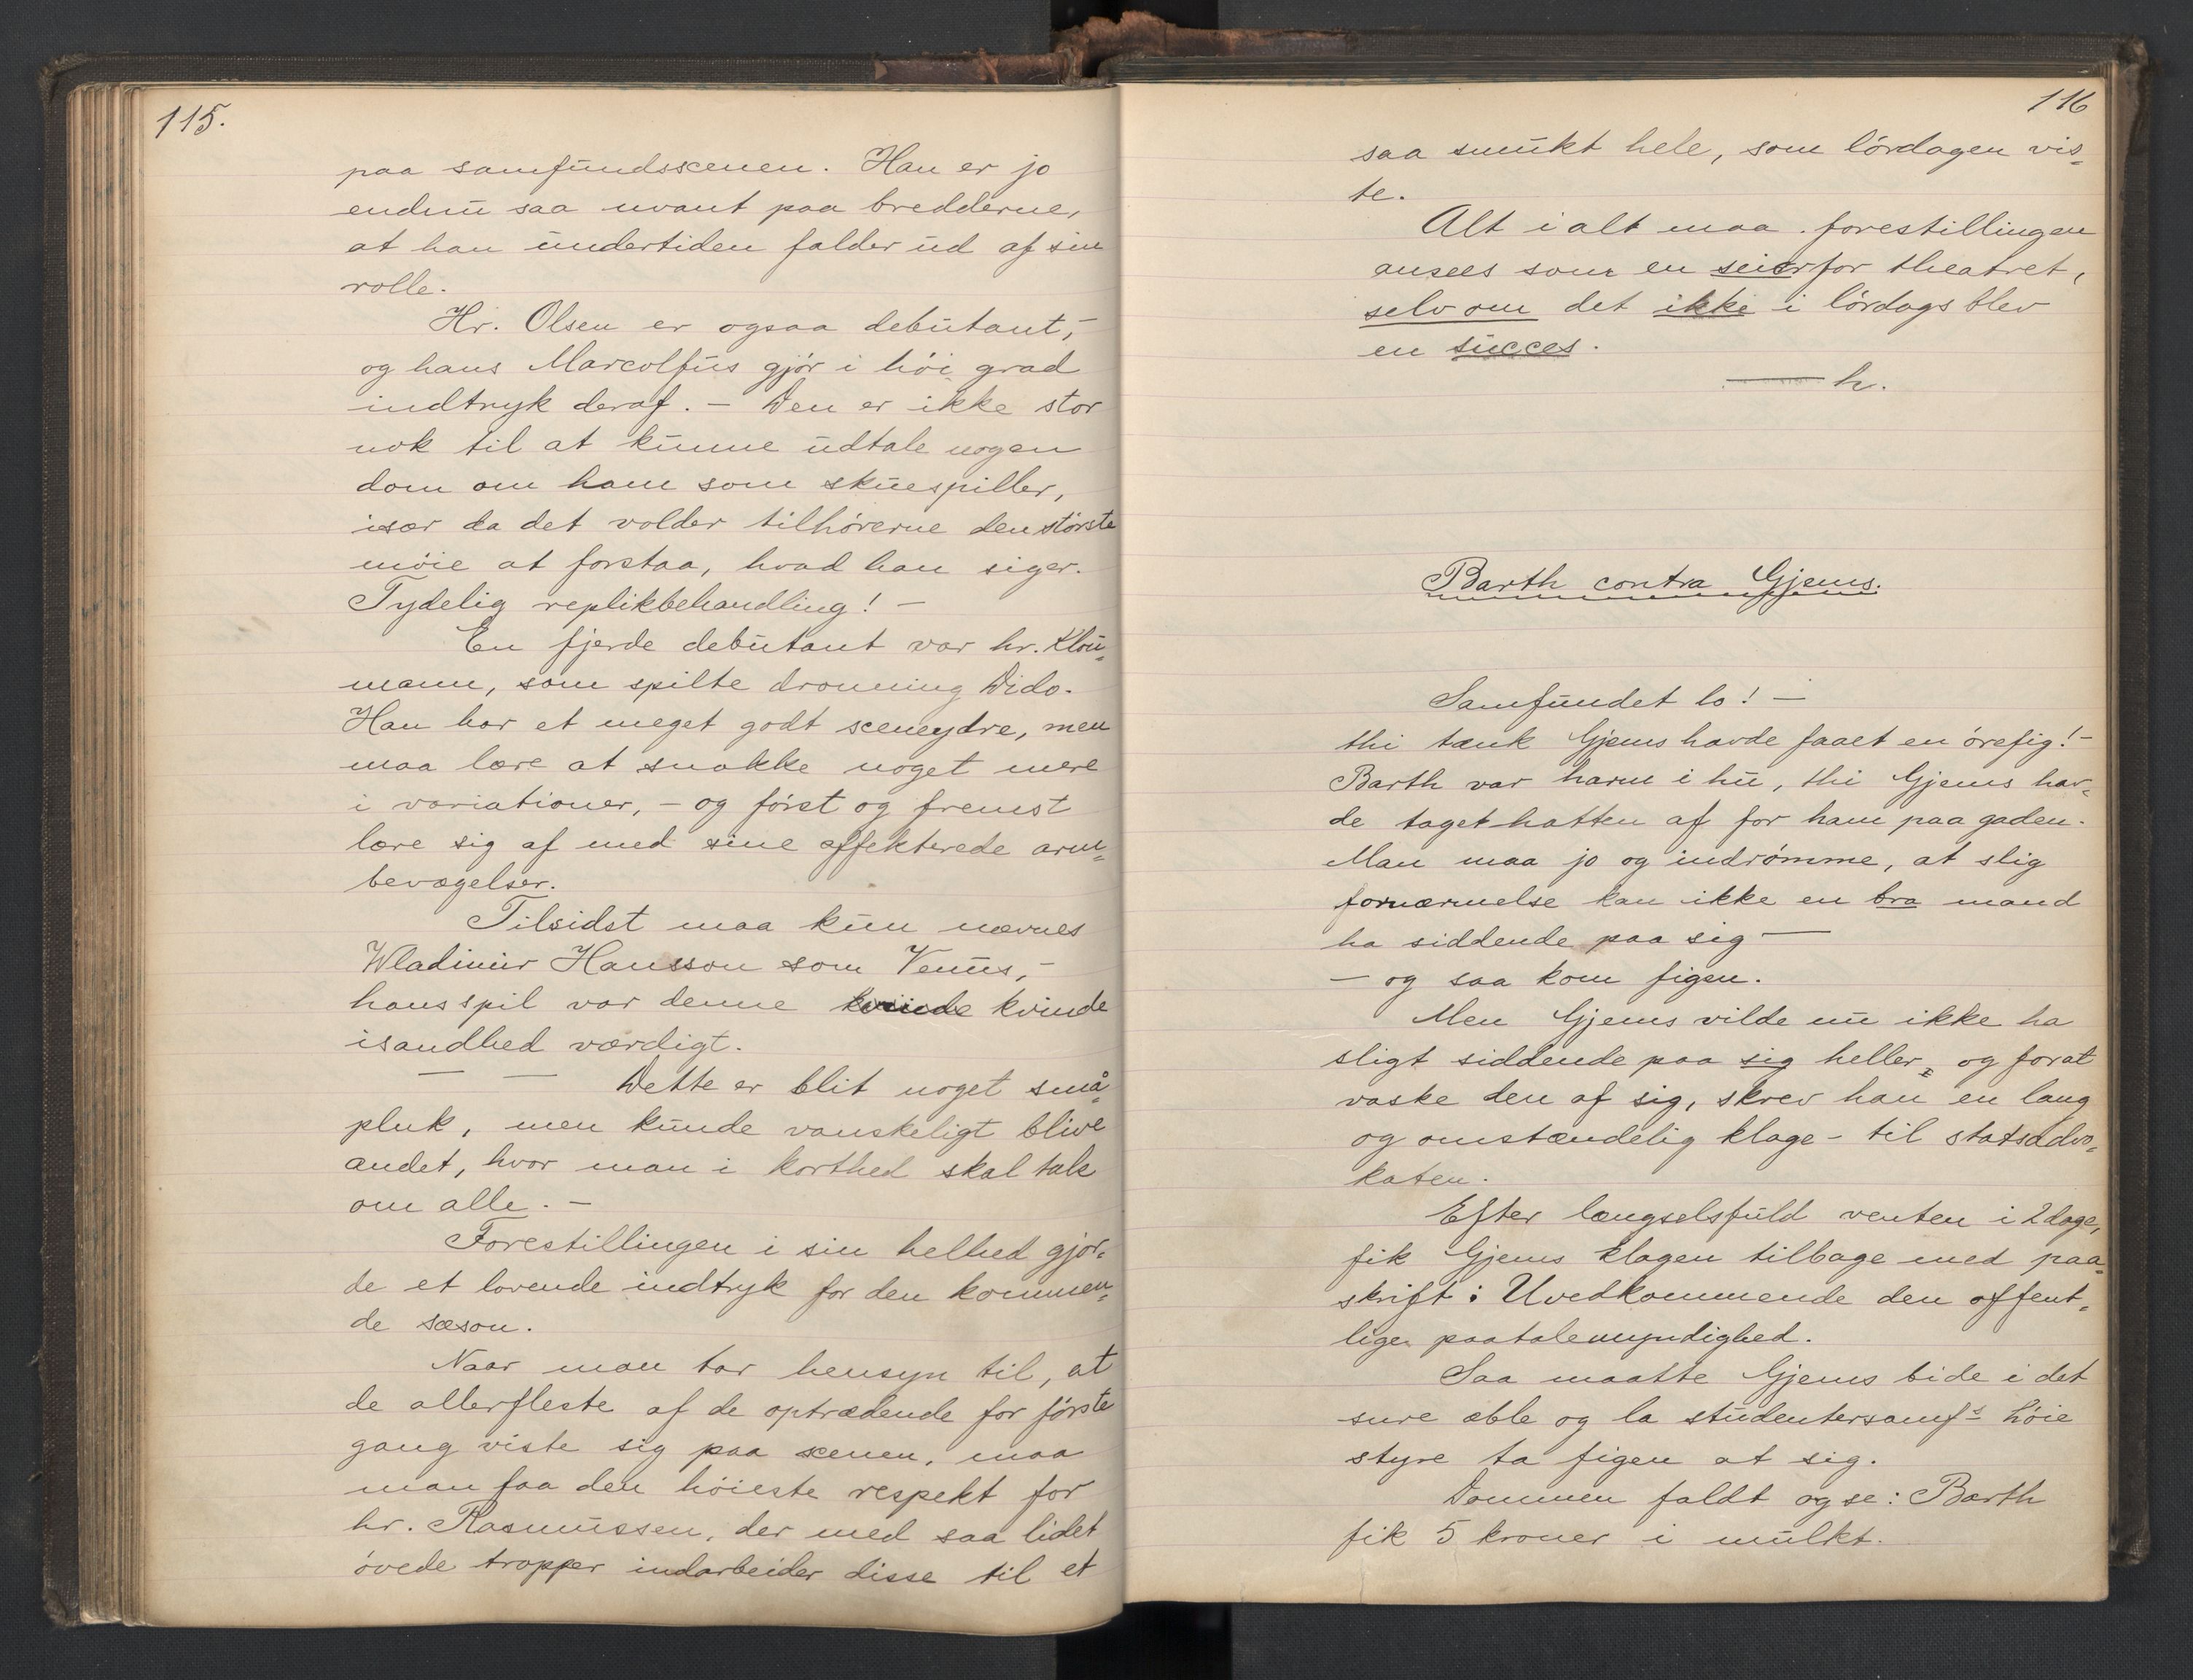 115.
paa samfundsscenen. Han er jo
endnu saa uvant paa bredderne,
at han undertiden falder ud af sin
rolle.
Hr. Olsen er ogsaa debutant, –
og hans Marcolfus gjør i høi grad
indtryk deraf. – Den er ikke stor
nok til at kunne udtale nogen
dom om ham som skuespiller,
især da det volder tilhørerne den største
møie at forstaa, hvad han siger.
Tydelig replikbehandling! –
En fjerde debutant var hr. Klou=
mann, som spilte dronning Dido.
Han har et meget godt sceneydre, men
maa lære at snakke noget mere
i variationer, – og først og fremst
lære sig af med sine affekterede arm=
bevægelser.
Tilsidst maa kun nævnes
Wladimir Hansson som Venus, –
hans spil var denne kvinde kvinde
isandhed værdigt.
— — Dette er blit noget små=
pluk, men kunde vanskeligt blive
andet, hvor man i korthed skal tale
om alle. –
Forestillingen i sin helhed gjor=
de et lovende indtryk for den kommen=
de sæson.
Naar man tar hensyn til, at
de allerfleste af de optrædende for første
gang viste sig paa scenen, maa
man faa den høieste respekt for
hr. Rasmussen, der med saa lidet
øvede tropper indarbeider disse til et
116
saa smukt hele, som lørdagen vis=
te.
Alt i alt maa forestillingen
ansees som en seier for theatret,
selv om det ikke i lørdags blev
en succes.
— h.
Barth contra Gjems.
Samfundet lo! –
thi tænk Gjems havde faaet en ørefig! –
Barth var harm i hu, thi Gjems hav=
de taget hatten af for ham paa gaden.
Man maa jo og indrømme, at slig
fornærmelse kan ikke en bra mand
ha siddende paa sig —
– og saa kom figen.
Men Gjems vilde nu ikke ha
sligt siddende paa sig heller, og forat
vaske den af sig, skrev han en lang
og omstændelig klage – til statsadvo=
katen.
Efter længselsfuld venten i 2 dage,
fik Gjems klagen tilbage med paa=
skrift: Uvedkommende den offent=
lige paatalemyndighed.
Saa maatte Gjems bide i det
sure æble og la studentersamfs høie
styre ta figen at sig.
Dommen faldt og se: Barth
fik 5 kroner i mulkt.